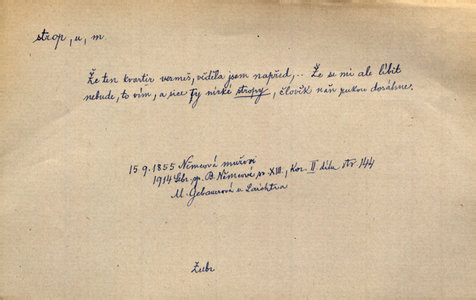 strop, u, m.
Že ten kvartir vezmeš, věděla jsem napřed,.. Že se mi ale líbit
nebude, to vím, a sice ty nízké stropy, člověk naň rukou dosáhne.
15.9.1855 Němcová mužovi
1914 Sebr. sp. B. Němcové sv. XIII., Kor. II díla str 144
M. Gebauerová u Laichtra
Zubr